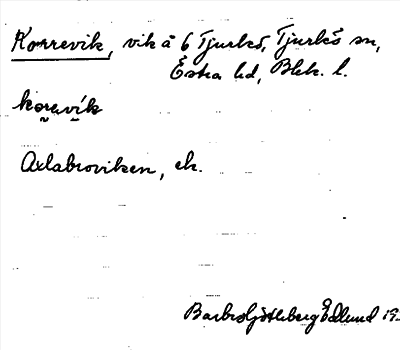 Korrevik, vik å 6 Tjurkö, Tjurkö sn,
Östra hd, Blek. l.
korevik
Axlabroviken, ek.
Barbro Götleberg Edlund 19